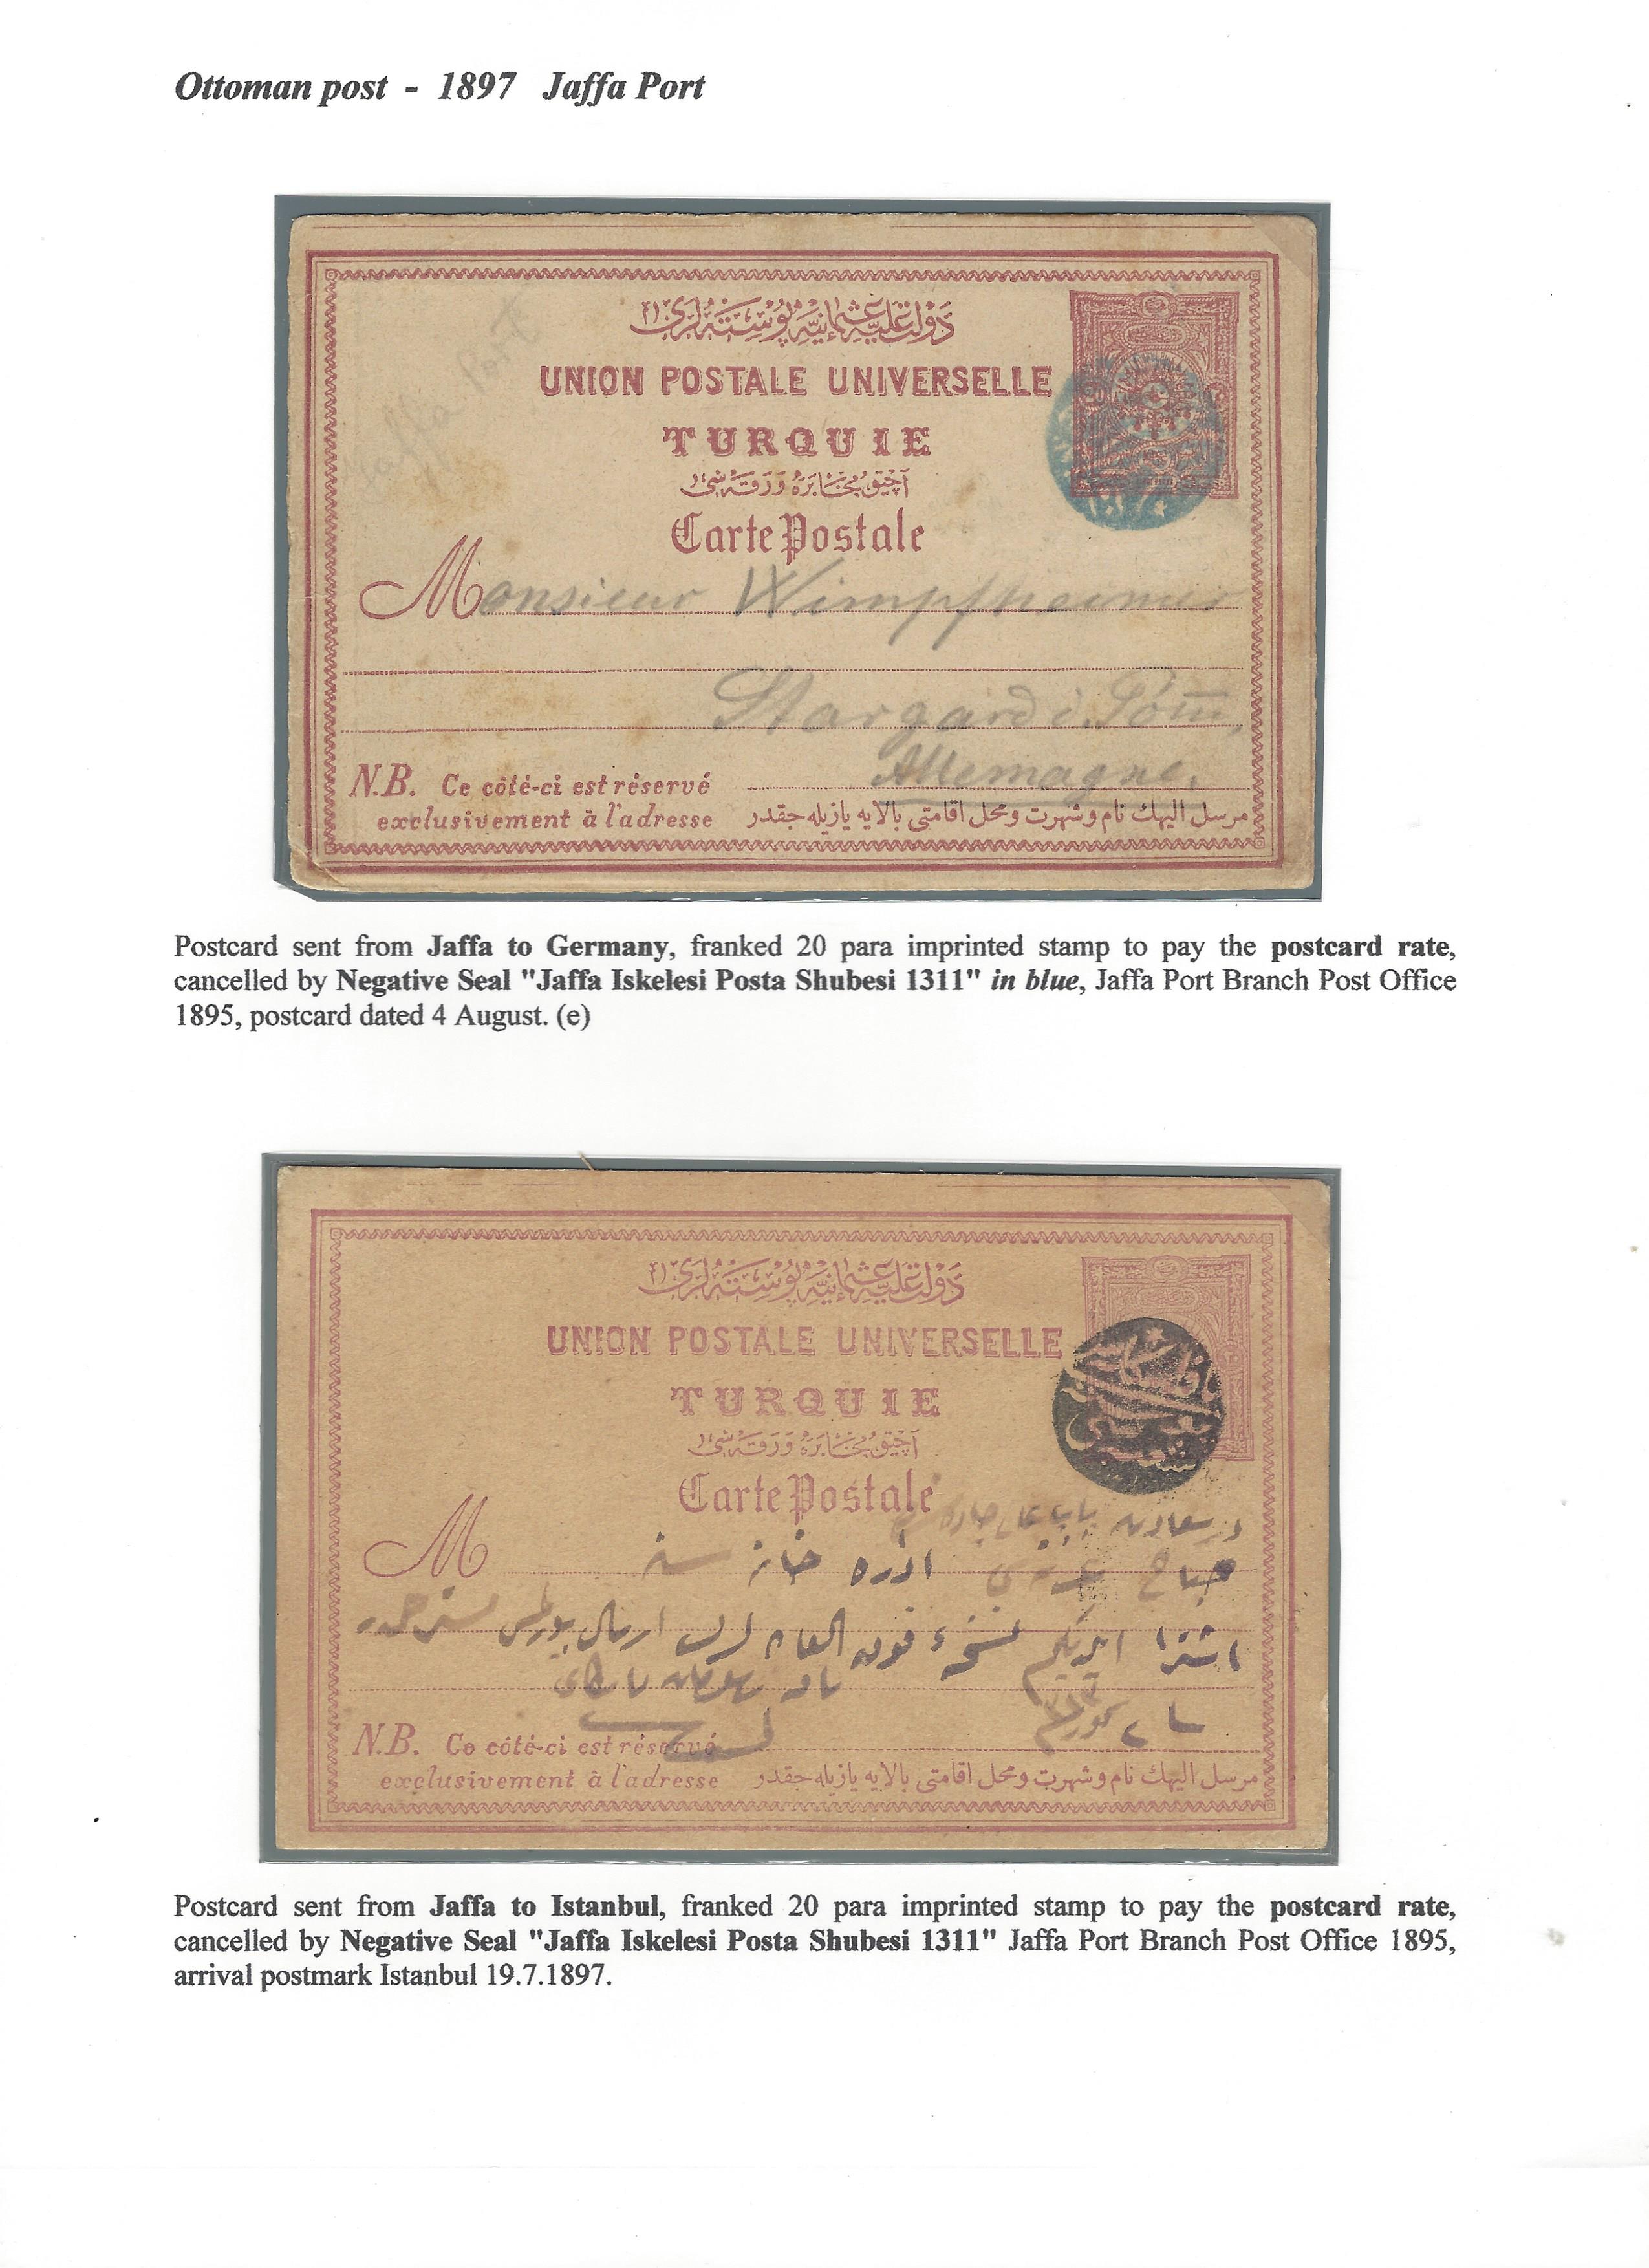 Ottoman post - 1897 Jaffa Port
دولت علیه عثمانیه پوسته لری
UNION POSTALE UNIVERSELLE
TURQUIE
آچیق مخابره ورقه سی
Carte Postale
Jaffa Port
Monsieur Wimpfheimer
Stargard i. Pom̅
Allemagne.
N.B. Ce côté-ci est réservé
exclusivement à l'adresse
مرسل الیهك نام وشهرت ومحل اقامتی بالایه یازیله جقدر
Postcard sent from Jaffa to Germany, franked 20 para imprinted stamp to pay the postcard rate,
cancelled by Negative Seal "Jaffa Iskelesi Posta Shubesi 1311" in blue, Jaffa Port Branch Post Office
1895, postcard dated 4 August. (e)
دولت علیه عثمانیه پوسته لری
UNION POSTALE UNIVERSELLE
TURQUIE
آچیق مخابره ورقه سی
Carte Postale
در سعادتده باب عالی جاده سنده
صباح غزته سی اداره خانه سنه
M
N.B. Ce côté-ci est réservé
exclusivement à l'adresse
مرسل الیهك نام وشهرت ومحل اقامتی بالایه یازیله جقدر
Postcard sent from Jaffa to Istanbul, franked 20 para imprinted stamp to pay the postcard rate,
cancelled by Negative Seal "Jaffa Iskelesi Posta Shubesi 1311" Jaffa Port Branch Post Office 1895,
arrival postmark Istanbul 19.7.1897.